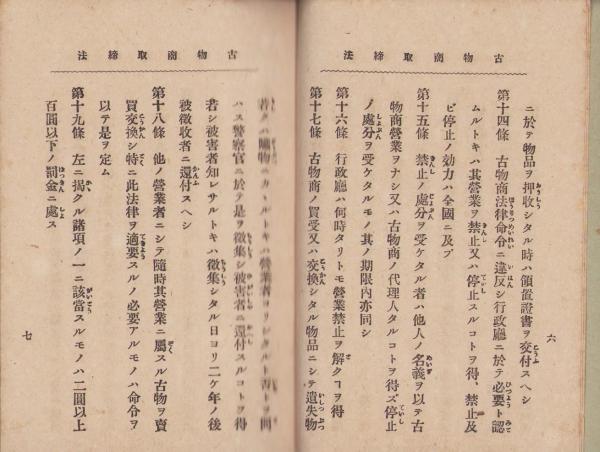 古物商取締法
ニ於テ物品ヲ押收シタル時ハ領置證書ヲ交付スヘシ
第十四條 古物商法律命令ニ違反シ行政廳ニ於テ必要ト認
ムルトキハ其營業ヲ禁止又ハ停止スルコトヲ得、禁止及
ビ停止ノ効力ハ全國ニ及ブ
第十五條 禁止ノ處分ヲ受ケタル者ハ他人ノ名義ヲ以テ古
物商營業ヲナシ又ハ古物商ノ代理人タルコトヲ得ズ停止
ノ處分ヲ受ケタルモノ其ノ期限内亦同シ
第十六條 行政廳ハ何時タリトモ營業禁止ヲ解クヿヲ得
第十七條 古物商ノ買受又ハ交換シタル物品ニシテ遺失物
六
古物商取締法
若クハ贓物ニカヽルトキハ營業者ヨリシタルト否トヲ問
ハス警察官ニ於テ是ヲ徴集シ被害者ニ還付スルコトヲ得
若シ被害者知レサルトキハ徴集シタル日ヨリ二ケ年ノ後
被徴收者ニ還付スヘシ
第十八條 他ノ營業者ニシテ隨時其營業ニ屬スル古物ヲ賣
買交換シ特ニ此法律ヲ適要スルノ必要アルモノハ命令ヲ
以テ是ヲ定ム
第十九條 左ニ揭クル諸項ノ一ニ該當スルモノハ二圓以上
百圓以下ノ罰金ニ處ス
七